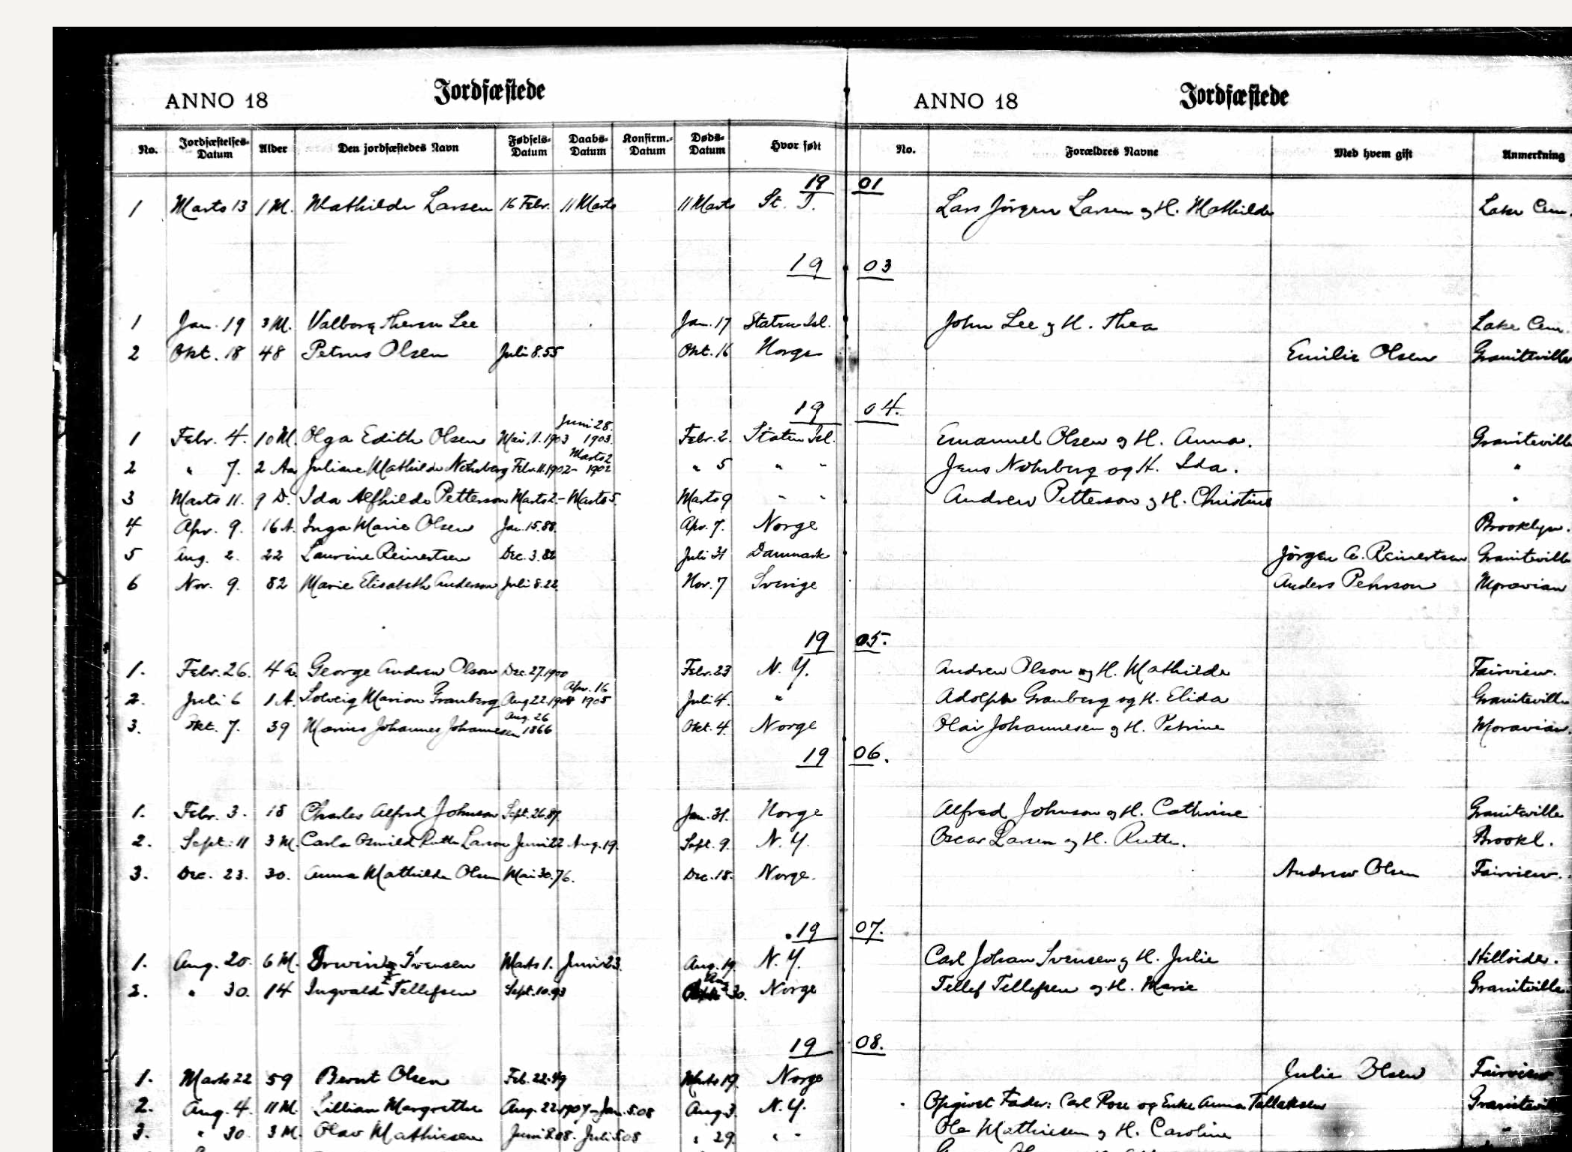 ANNO 18 Jordfæstede ANNO 18 Jordfæstede
No. Jordfæstelses-Datum Alder Den jordfæstedes Navn Fødsels-Datum Daabs-Datum Konfirm.-Datum Døds-Datum Hvor født No. Forældres Navne Med hvem gift Anmerkning
19 01
1 Marts 13 1 M. Mathilde Larsen 16 Febr. 11 Marts 11 Marts St. I. Lars Jörgen Larsen og H. Mathilde Lake Cem.
19 03
1 Jan. 19 3 M. Valborg Theresa Lee Jan. 17 Staten Isl. John Lee og H. Thea Lake Cem.
2 Okt. 18 48 Petrus Olsen Juli 8.55 Okt. 16 Norge Emilie Olsen Graniteville
19 04.
1 Febr. 4. 10 M. Olga Edith Olsen Mai 1.1903 Juni 28 1903. Febr. 2. Staten Isl. Emanuel Olsen og H. Anna. Graniteville
2 " 7. 2 Aar Juliane Mathilde Nohrberg Febr. 11.1902- Marts 2 1902 " 5 " " Jens Nohrberg og H. Ida. "
3 Marts 11. 9 D. Ida Alfhilde Petterson Marts 2- Marts 5. Marts 9 " " Andrew Petterson og H. Christine "
4 Apr. 9. 16 A. Inga Marie Olsen Jan. 15.88. Apr. 7. Norge Brooklyn.
5 Aug. 2. 22 Laurine Reinertsen Dec. 3.82 Juli 31 Danmark Jörgen C. Reinertsen Graniteville
6 Nov. 9. 82 Marie Elisabeth Anderson Juli 8.22 Nov. 7 Sverige Anders Pehrson Moravian
19 05.
1. Febr. 26. 4 A. George Andrew Olson Dec. 27.1900 Febr. 23 N. Y. Andrew Olson og H. Mathilde Fairview.
2. Juli 6 1 A. Solveig Marion Granberg Aug 22.1904 Apr. 16 1905 Juli 4. " Adolph Granberg og H. Elida Graniteville
3. Okt. 7. 39 Marius Johannes Johannesen Aug. 26 1866 Okt. 4. Norge Olai Johannesen og H. Petrine Moravian.
19 06.
1. Febr. 3. 18 Charles Alfred Johnson Sept. 26.87. Jan. 31. Norge Alfred Johnson og H. Cathrine Graniteville
2. Sept. 11 3 M. Carla Ruth Larsen Juni 22 Aug. 19. Sept. 9. N. Y. Oscar Larsen og H. Ruth. Brookl.
3. Dec. 23. 30. Anna Mathilde Olsen Mai 30.76. Dec. 18. Norge. Andrew Olsen Fairview.
19 07.
1. Aug. 20. 6 M. Svensen Marts 1. Juni 23. Aug. 19. N. Y. Carl Johan Svensen og H. Julie Hillsides.
2. " 30. 14 Ingvald Tellefsen Sept. 10.93 Aug 30. Norge Tellef Tellefsen og H. Marie Graniteville.
19 08.
1. Marts 22 59 Bernt Olsen Feb. 22.49 Marts 19. Norge Julie Olsen Fairview
2. Aug. 4. 11 M. Lillian Margrethe Aug. 22 1907- Jan. 5.08 Aug 3. N. Y. Opgivet Fader: Carl Rose og Enke Anna Tallaksen Graniteville
3. " 30. 3 M. Olav Mathiesen Juni 8.08. Juli 5.08 " 29. " " Ole Mathiesen og H. Caroline "